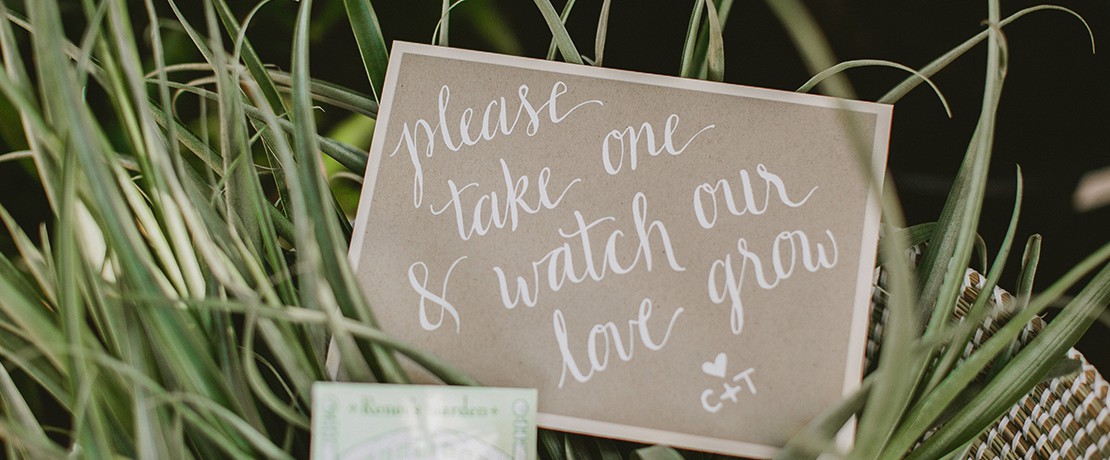 please
take one
& watch our
love grow
♥
C+T
Garden